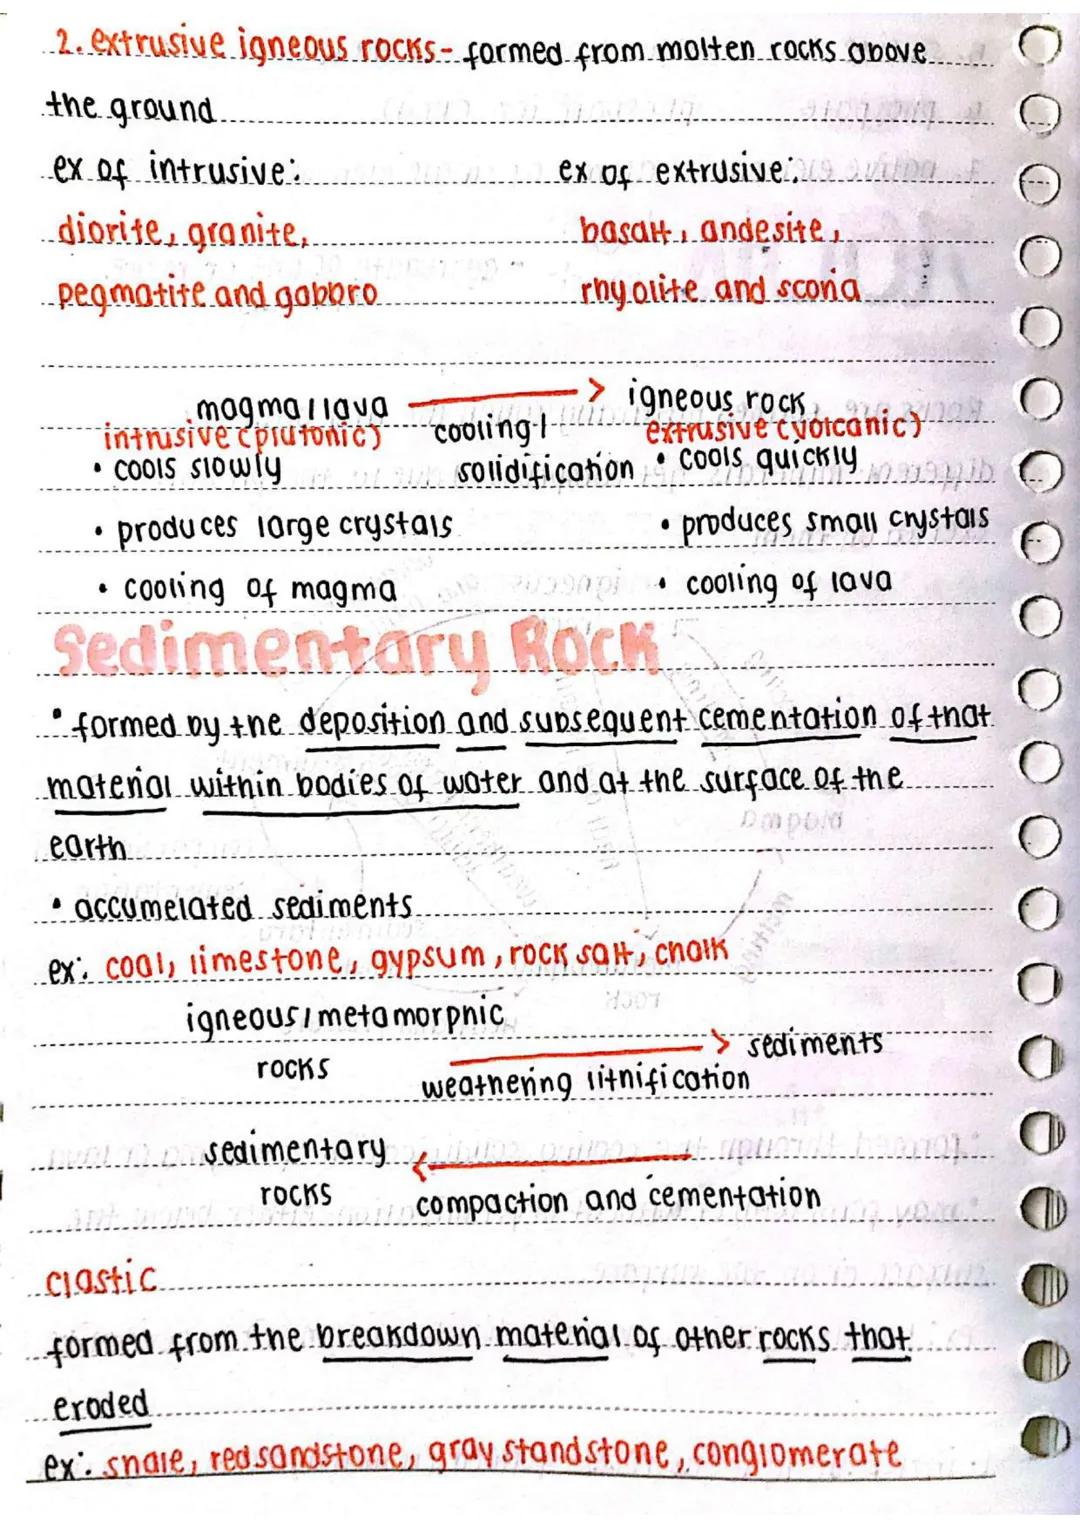 2. extrusive igneous rocks- formed from molten rocks above
the ground
ex of intrusive: ex of extrusive:
diorite, granite, basalt, andesite,
pegmatite and gabbro rhyolite and scoria
magma/lava → igneous rock
intrusive (plutonic) cooling/ extrusive (volcanic)
• cools slowly solidification • cools quickly
• produces large crystals • produces small crystals
• cooling of magma • cooling of lava
Sedimentary Rock
• formed by the deposition and subsequent cementation of that
material within bodies of water and at the surface of the
earth
• accumelated sediments
ex: coal, limestone, gypsum, rock salt, chalk
igneous/metamorphic → sediments
rocks weathering lithification
sedimentary ←
rocks compaction and cementation
clastic
formed from the breakdown material of other rocks that
eroded
ex: shale, red sandstone, gray standstone, conglomerate